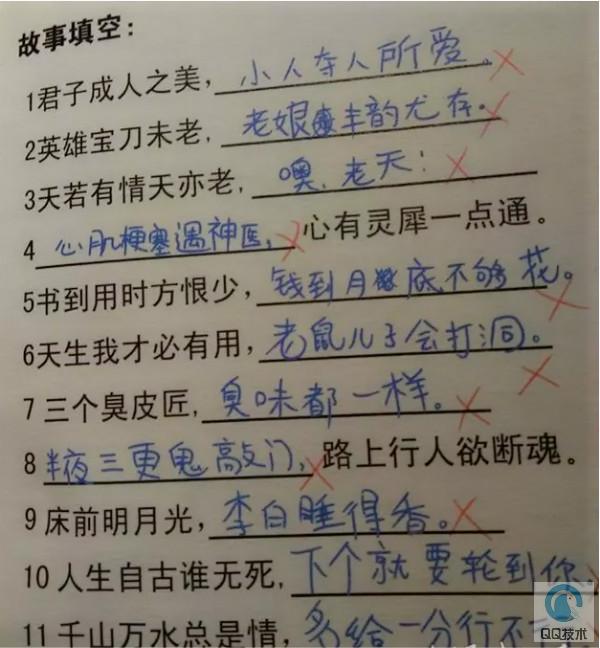 故事填空：
1君子成人之美，小人夺人所爱。
2英雄宝刀未老，老娘丰韵尤存。
3天若有情天亦老，噢，老天！
4心肌梗塞遇神医，心有灵犀一点通。
5书到用时方恨少，钱到月底不够花。
6天生我才必有用，老鼠儿子会打洞。
7三个臭皮匠，臭味都一样。
8半夜三更鬼敲门，路上行人欲断魂。
9床前明月光，李白睡得香。
10人生自古谁无死，下个就要轮到你
11千山万水总是情，多给一分行不
QQ技术